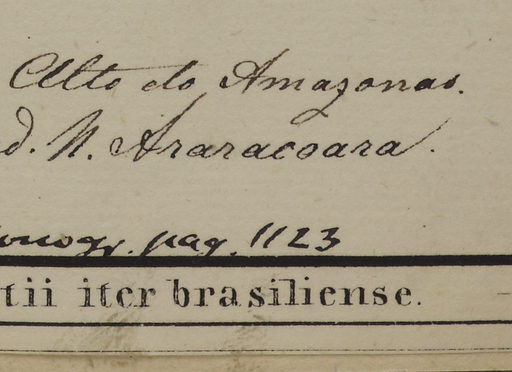 Alto do Amazonas.
d. N. Araracoara.
onogr. pag. 1123
tii iter brasiliense.